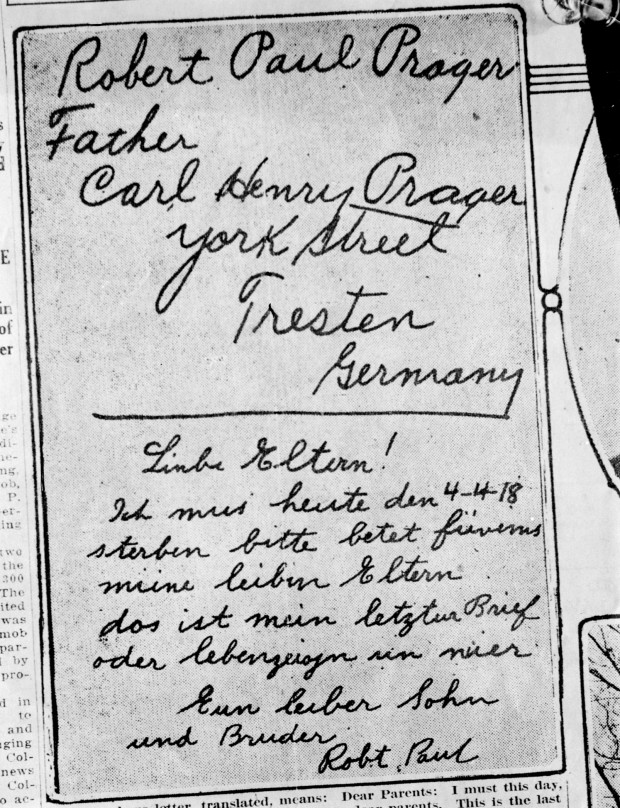 Robert Paul Prager
Father
Carl Henry Prager
York Street
Tresten
Germany
Linbe Eltern!
Ich mus heute den 4-4-18
sterben bitte betet
meine leiben Eltern
dos ist mein letztur Brief
oder lebenzeign un mier
Eun leiber Sohn
und Bruder
Robt. Paul
letter, translated, means: Dear Parents: I must this day,
parents. This is the last